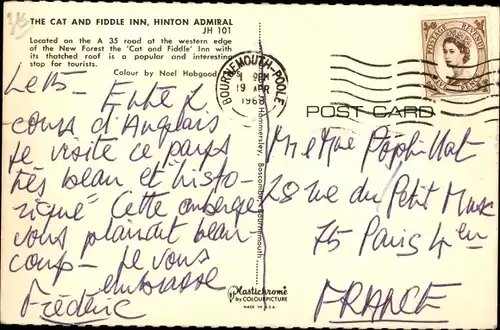 THE CAT AND FIDDLE INN, HINTON ADMIRAL
JH 101
Located on the A 35 road at the western edge
of the New Forest the 'Cat and Fiddle' Inn with
its thatched roof is a popular and interesting
stop for tourists.
Colour by Noel Habgood
Le 15 - Entre 2
cours d'Anglais
je visite ce pays
très beau et histo-
rique Cette auberge
vous plairait beau-
coup - Je vous
embrasse
Frédéric
BOURNEMOUTH-POOLE
19 APR
1968
POSTAGE REVENUE
POST CARD
28 rue du Petit Musc
75 Paris 4em
FRANCE
Hammersley, Boscombe, Bournemouth
Plastichrome
by COLOURPICTURE
MADE IN U.S.A.